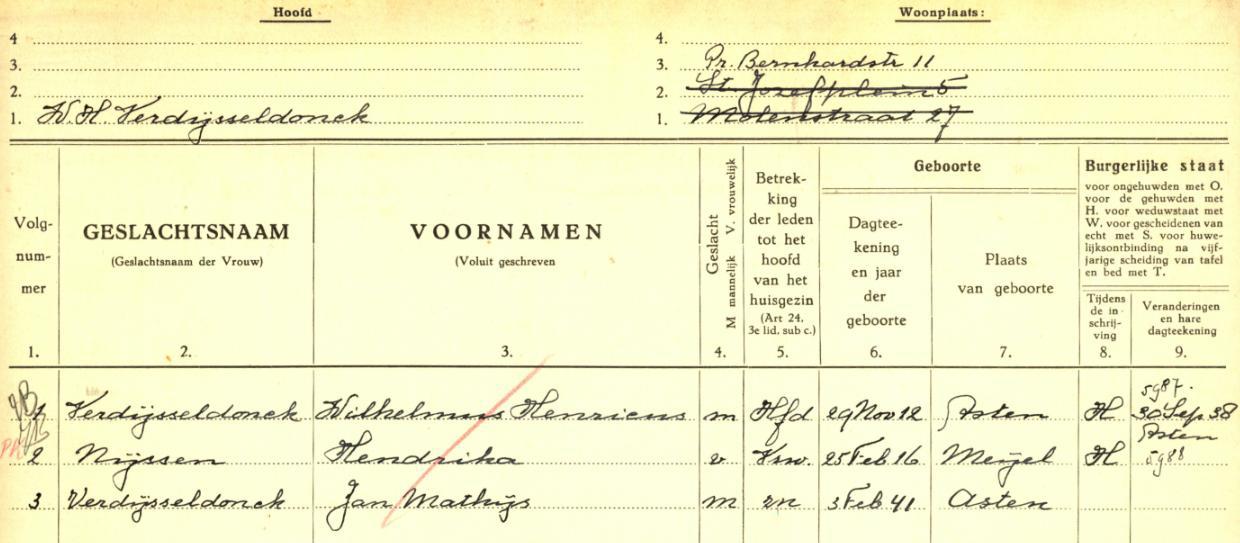 Hoofd
Woonplaats:
4
4.
3.
3. Pr. Bernhardstr 11
2.
2. St. Jozefplein 5
1. W. H Verdijsseldonck
1. Molenstraat 27
Volg-
num-
mer
1.
GESLACHTSNAAM
(Geslachtsnaam der Vrouw)
2.
VOORNAMEN
(Voluit geschreven
3.
Geslacht
M mannelijk V. vrouwelijk
4.
Betrek-
king
der leden
tot het
hoofd
van het
huisgezin
(Art 24,
3e lid, sub c.)
5.
Geboorte
Dagtee-
kening
en jaar
der
geboorte
6.
Plaats
van geboorte
7.
Burgerlijke staat
voor ongehuwden met O.
voor de gehuwden met
H. voor weduwstaat met
W. voor gescheidenen van
echt met S. voor huwe-
lijksontbinding na vijf-
jarige scheiding van tafel
en bed met T.
Tijdens
de in-
schrij-
ving
8.
Veranderingen
en hare
dagteekening
9.
5987.
1 Verdijsseldonck Wilhelmus Henricus m Hfd 29 Nov 12 Asten H 30 Sep 38
Asten
2 Nijssen Hendrika v Vrw. 25 Feb 16 Meijel H 5988
3 Verdijsseldonck Jan Mathijs m zn 3 Feb 41 Asten